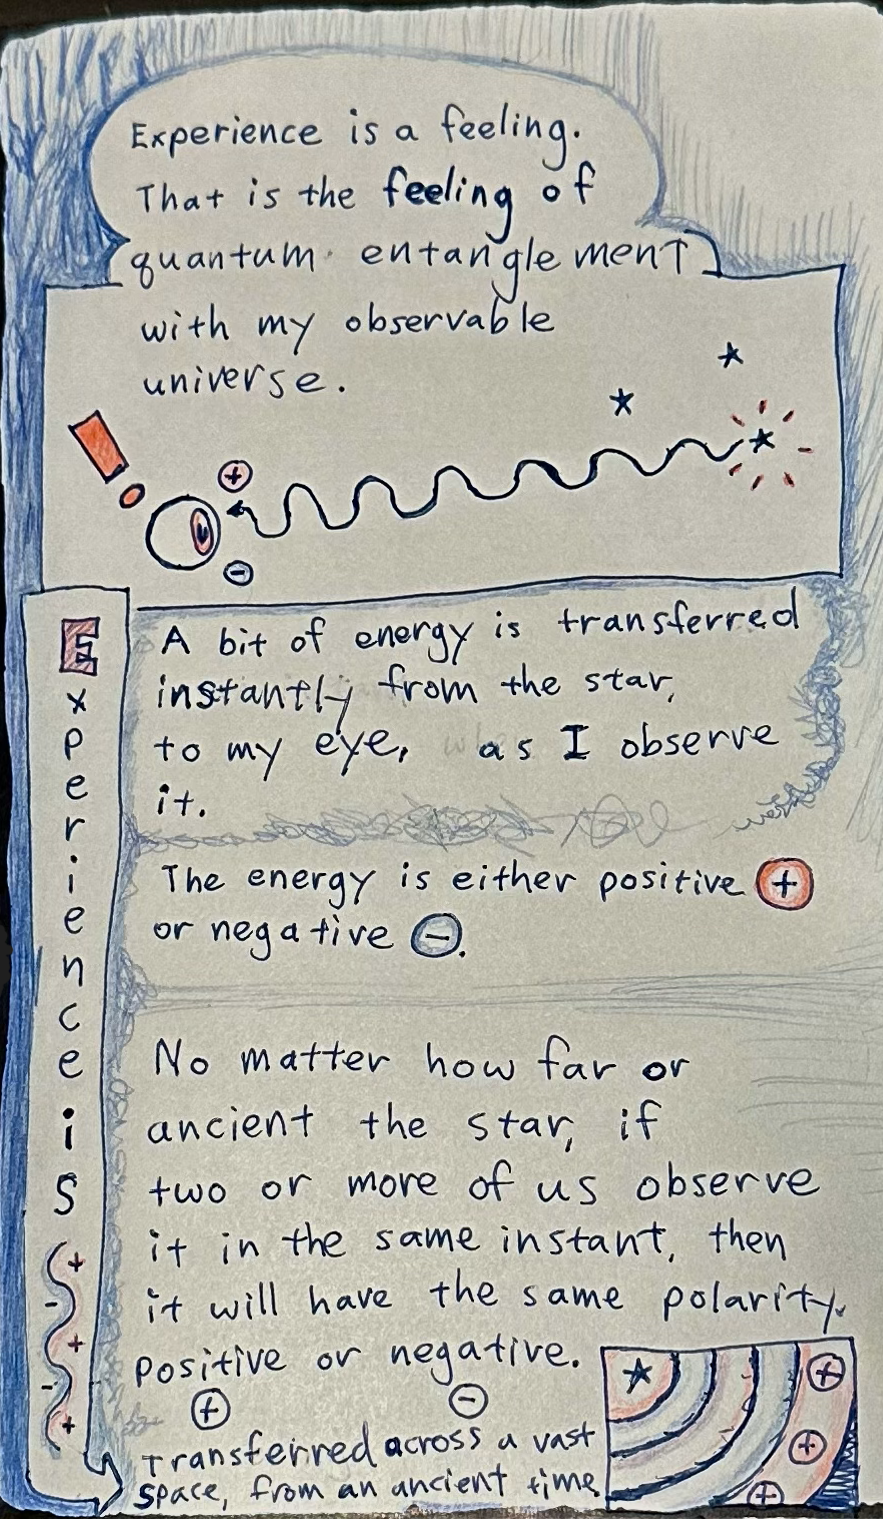 Experience is a feeling.
That is the feeling of
quantum entanglement
with my observable
universe.
+
-
Experience is
A bit of energy is transferred
instantly from the star,
to my eye, as I observe
it.
The energy is either positive +
or negative -.
No matter how far or
ancient the star, if
two or more of us observe
it in the same instant, then
it will have the same polarity.
positive or negative.
+ -
Transferred across a vast
space, from an ancient time.
+
-
+
-
+
+
+
+